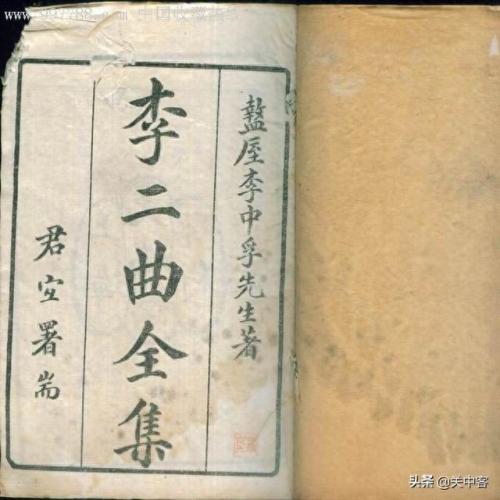 盩厔李中孚先生著
李二曲全集
君宜署耑
www.997788.com 中国收藏热线
头条 @关中客